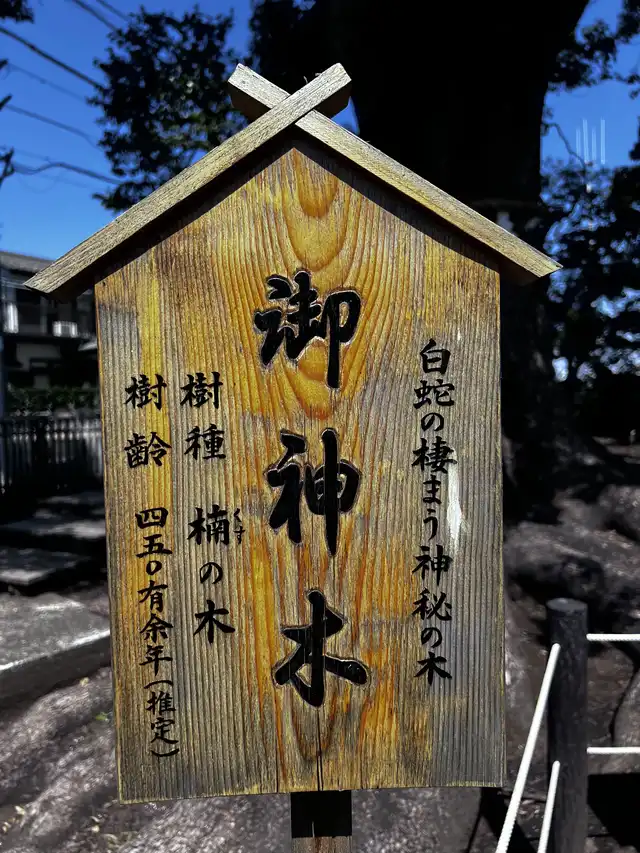 白蛇の棲まう神秘の木
御神木
樹種 楠の木
くす
樹齢 四五〇有余年(推定)